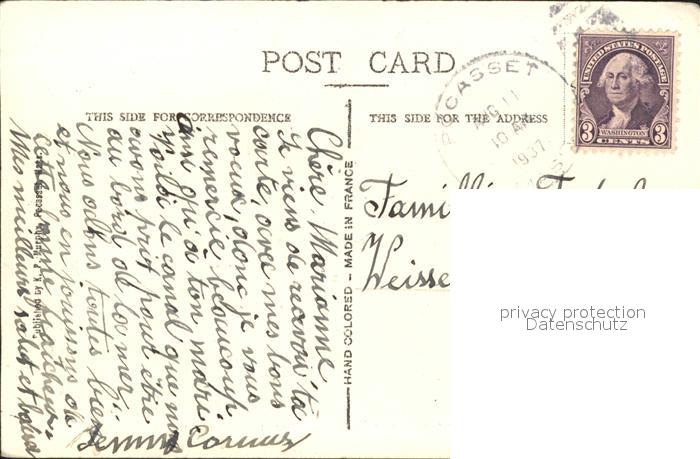 POST CARD
THIS SIDE FOR CORRESPONDENCE
THIS SIDE FOR THE ADDRESS
POCASSET
AUG 11
10 AM
1937
UNITED STATES POSTAGE
3 WASHINGTON 3
CENTS
Chère Marianne
Je viens de recevoir ta
carte, avec mes bons
voeux, donc je vous
remercie beaucoup
ainsi qu'à ton mari
Voilà le canal que nous
avons prit pour être
au bord de la mer.
Nous allons toutes bien
et nous en jouissons de
cette bonne fraicheur.
Mes meilleurs salut et baiser
Jenny Cornuz
HAND COLORED – MADE IN FRANCE
Published by H. P. Murphy, Pocasset, Mass.
Famil
Weisse
privacy protection
Datenschutz